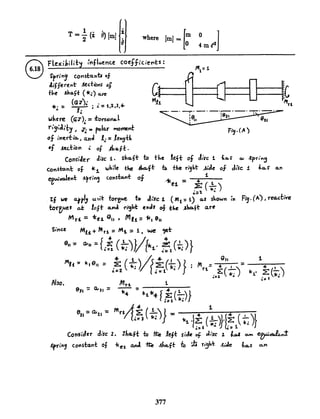 T = 1/2 (ẋ θ̇) [m] { ẋ θ̇ } where [m] = [ m 0 0 4 m ℓ² ]
6.18
Flexibility influence coefficients:
Spring constants of
different sections of
the shaft (k_i) are
k_i = (GJ)_i / l_i ; i = 1,2,3,4
where (GJ)_i = torsional
rigidity, J_i = polar moment
of inertia, and l_i = length
of section i of shaft.
M_1 = 1
M_ℓ1
M_r1
θ_11
θ_21
θ_31
Fig. (A)
Consider disc 1. Shaft to the left of disc 1 has a spring
constant of k_1 while the shaft to the right side of disc 1 has an
equivalent spring constant of k_e1 = 1 / Σ_{i=2}^{4} (1/k_i)
If we apply unit torque to disc 1 (M_1 = 1) as shown in Fig. (A), reactive
torques at left and right ends of the shaft are
M_r1 = k_e1 θ_11 , M_ℓ1 = k_1 θ_11
Since M_ℓ1 + M_r1 = M_1 = 1, we get
θ_11 = a_11 = {Σ_{i=2}^{4} (1/k_i)} / {k_1 · Σ_{i=1}^{4} (1/k_i)}
M_ℓ1 = k_1 θ_11 = Σ_{i=2}^{4} (1/k_i) / {Σ_{i=1}^{4} (1/k_i)} ; M_r1 = θ_11 / Σ_{i=2}^{4} (1/k_i) = 1 / k_1 · Σ_{i=1}^{4} (1/k_i)
Also, θ_31 = a_31 = M_r1 / k_4 = 1 / k_1 k_4 {Σ_{i=1}^{4} (1/k_i)}
Consider disc 2. Shaft to the left side of disc 2 has an equivalent
spring constant of k_e2 and the shaft to its right side has an
377